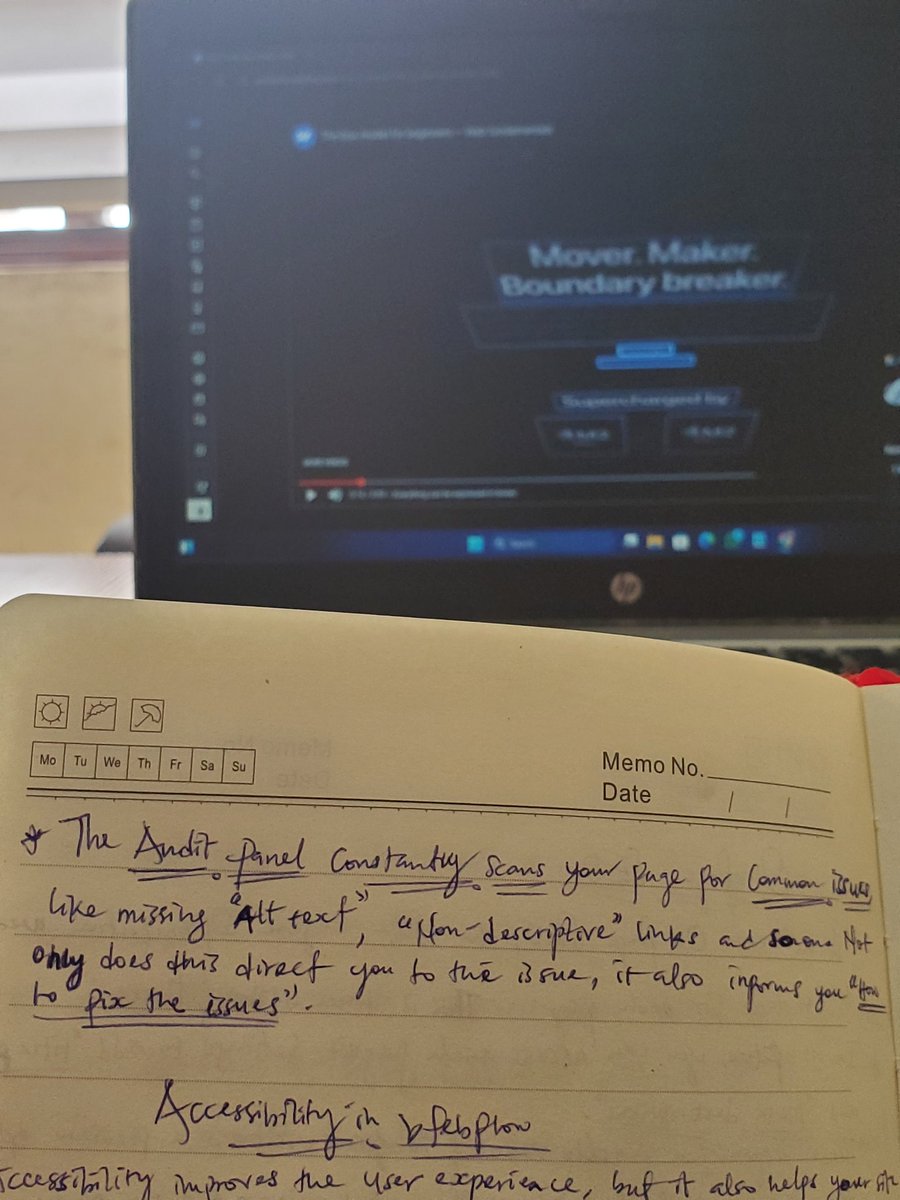 Mover. Maker.
Boundary breaker.
Supercharged by
Search
hp
Mo Tu We Th Fr Sa Su
Memo No.
Date / /
* The Audit panel Constantly scans your page for Common issues
like missing "Alt text", "Non-descriptive" links and so on. Not
only does this direct you to the issue, it also informs you "How
to fix the issues".
Accessibility in Webflow
Accessibility improves the user experience, but it also helps your site